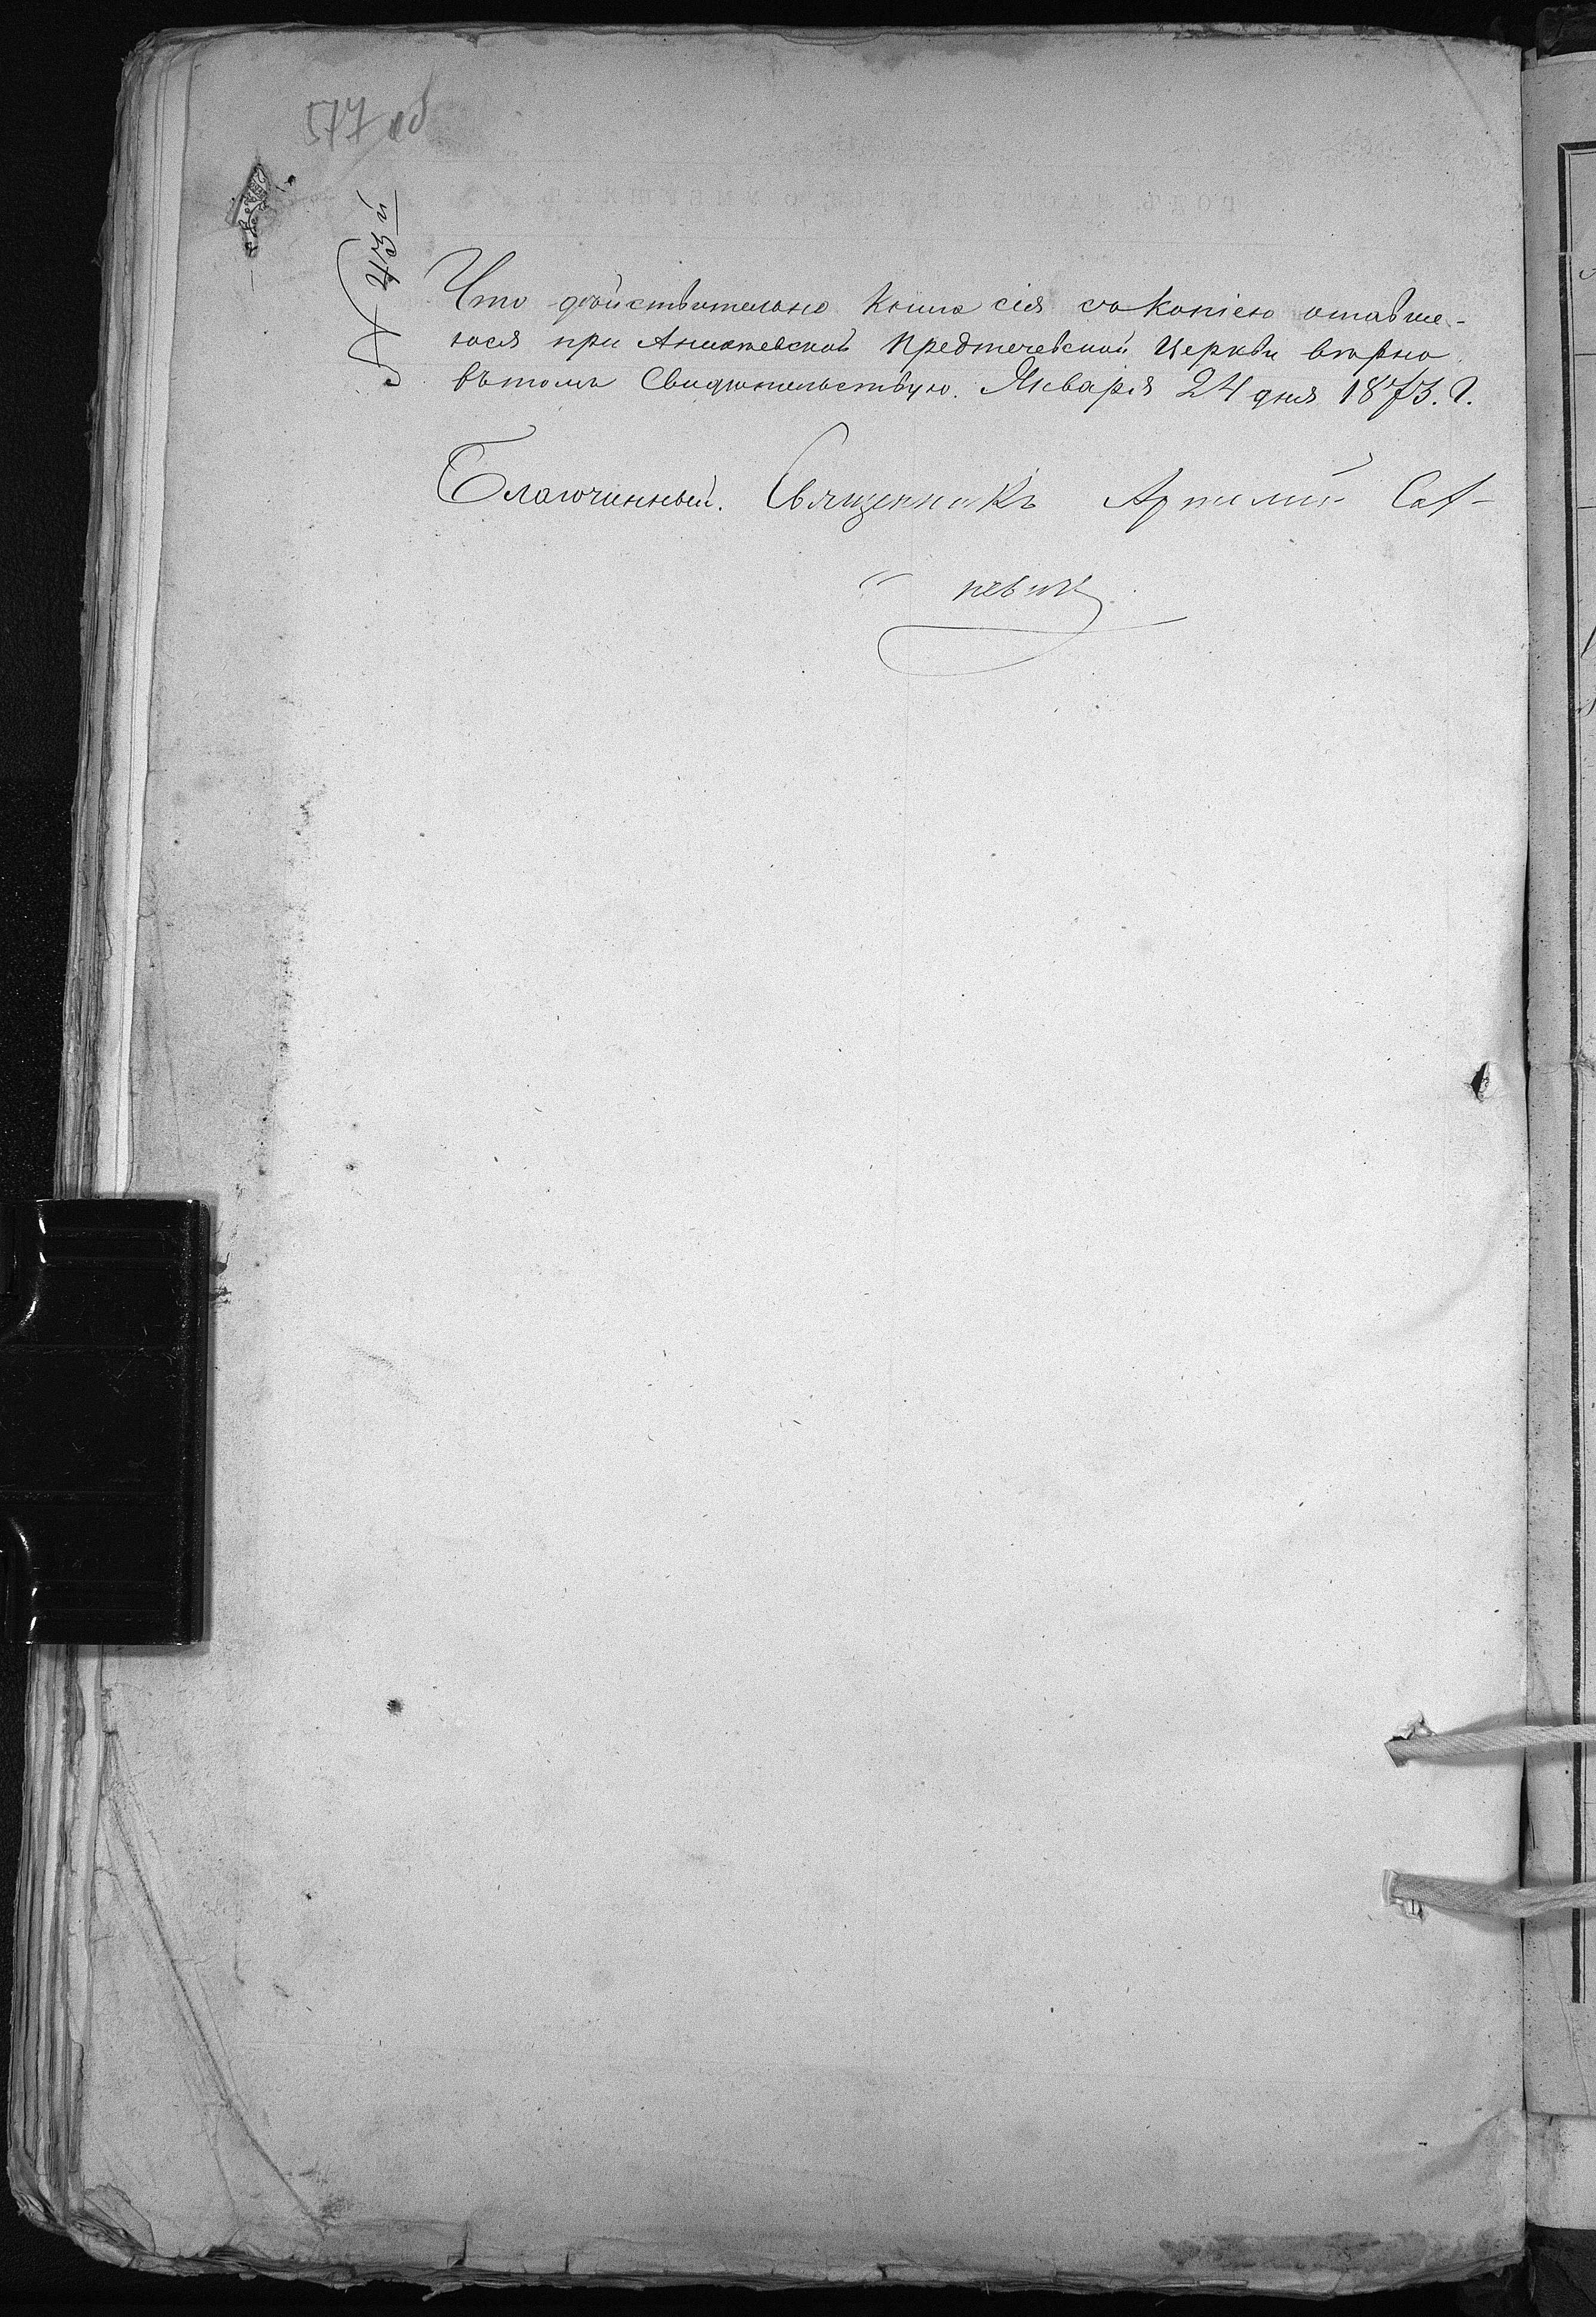 577 об
№ 43й
Что дѣйствительно книга сія съ копіею оставше-
юся при Предтечевской Церкви вѣрно
въ томъ Свидѣтельствую. Января 24 дня 1873. г.
Благочинный. Священникъ Артемій Сав-
невичъ